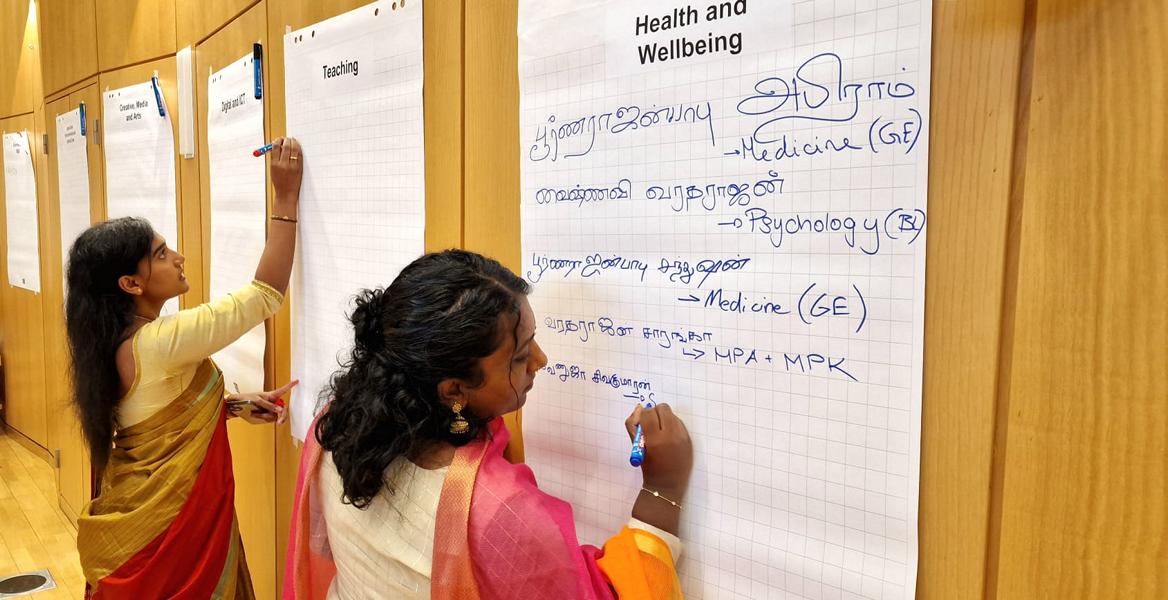 Creative, Media
and Arts
Digital and ICT
Teaching
Health and
Wellbeing
பூர்ணராஜன்பாபு அபிராம்
→Medicine (GE)
வைஷ்ணவி வரதராஜன்
→Psychology (BL)
பூர்ணராஜன்பாபு சந்துஷன்
→ Medicine (GE)
வரதராஜன் சாரங்கா
↳ MPA + MPK
சிவகுமாரன்